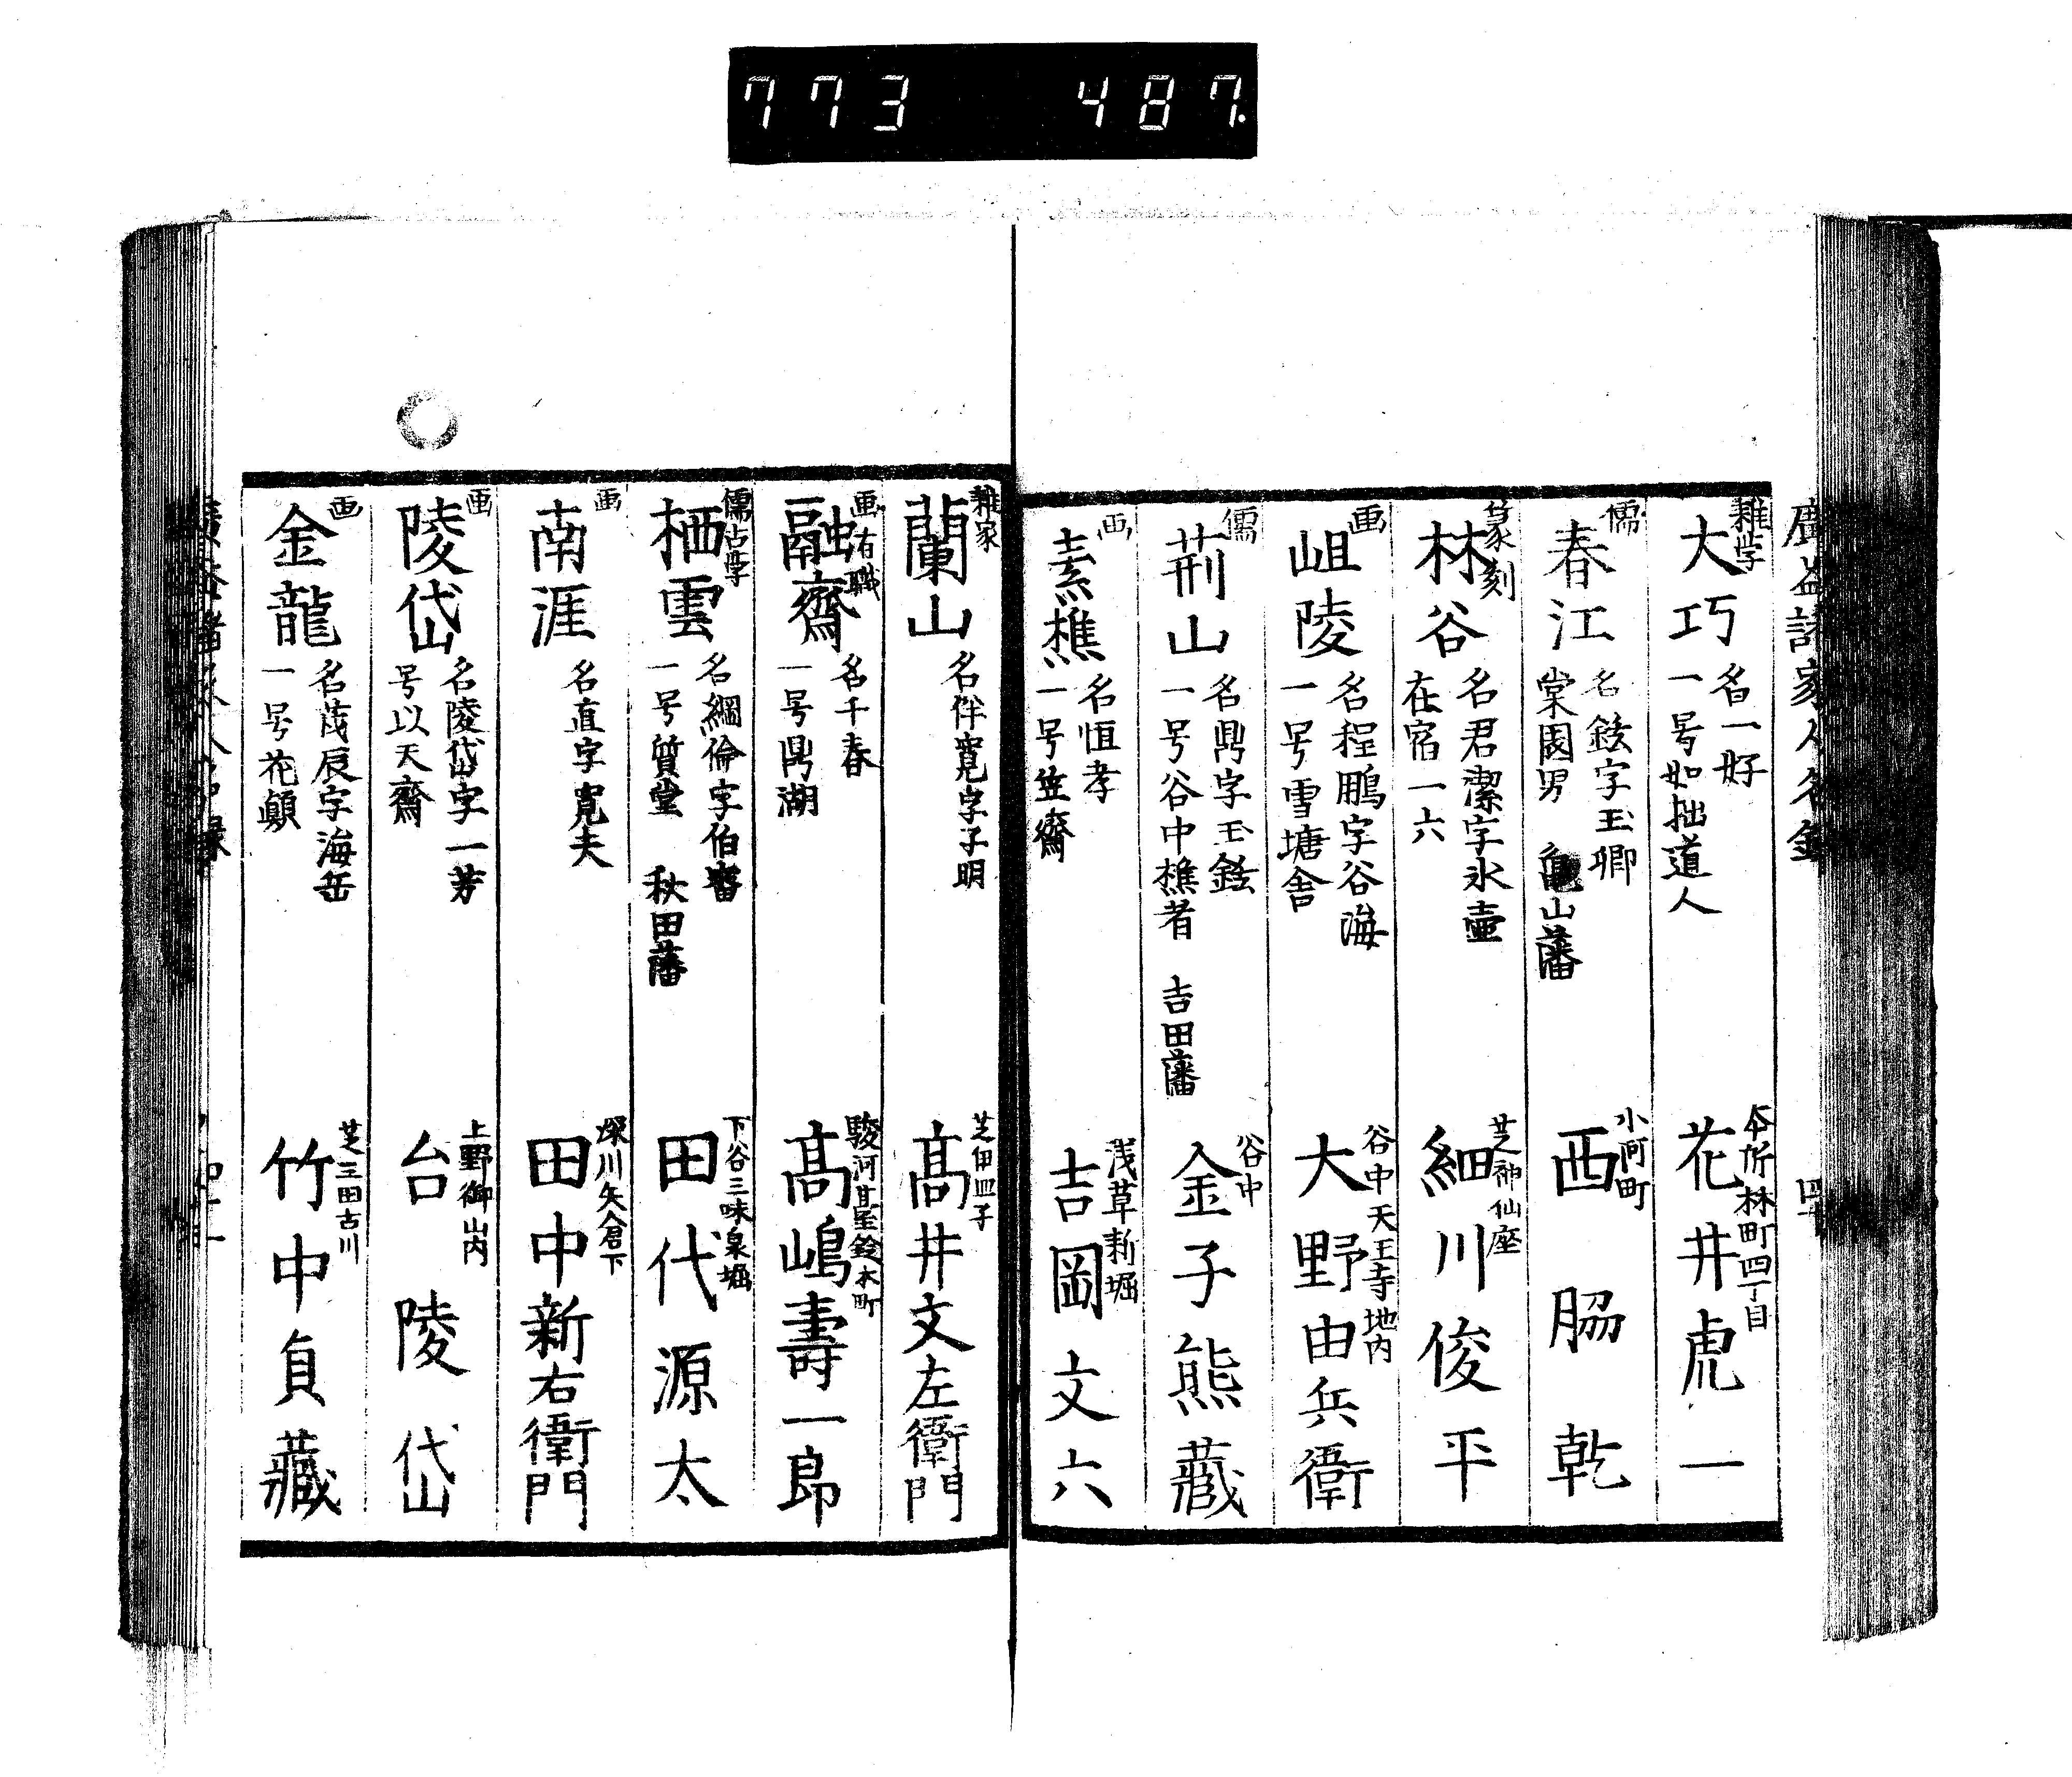 773 487.
廣益諸家人名録
雜学
大巧
名一好
一号如拙道人
本所林町四丁目
花井虎一
儒
春江
名鉉字玉卿
棠園男 亀山藩
小川町
西脇乾
篆刻
林谷
名君潔字氷壷
在宿一六
芝神仙座
細川俊平
画
岨陵
名程鵬字谷海
一号雪塘舎
谷中天王寺地内
大野由兵衛
儒
荊山
名鼎字玉鉉
一号谷中樵者 吉田藩
谷中
金子熊藏
画
素樵
名恒孝
一号笠齋
浅草新堀
吉岡文六
雜家
蘭山
名伴寛字子明
芝伊皿子
髙井文左衛門
画有職
融齋
名千春
一号鼎湖
駿河臺鈴木町
髙嶋壽一郎
儒古学
栖雲
名綱倫字伯
一号質堂 秋田藩
下谷三味泉堀
田代源太
画
南涯
名直字寛夫
深川矢倉下
田中新右衛門
画
陵岱
名陵岱字一芳
号以天齋
上野御山内
台陵岱
画
金龍
名茂辰字海缶
一号花顛
芝三田古川
竹中貞藏